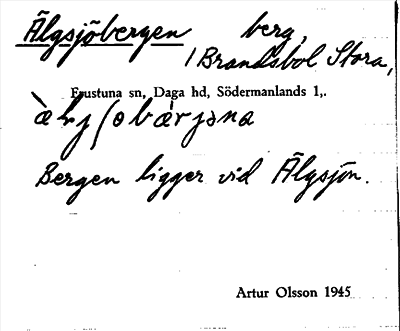 Älgsjöbergen berg,
/ Brandsbol Stora,
Frustuna sn, Daga hd, Södermanlands l,.
Bergen ligger vid Älgsjön.
Artur Olsson 1945